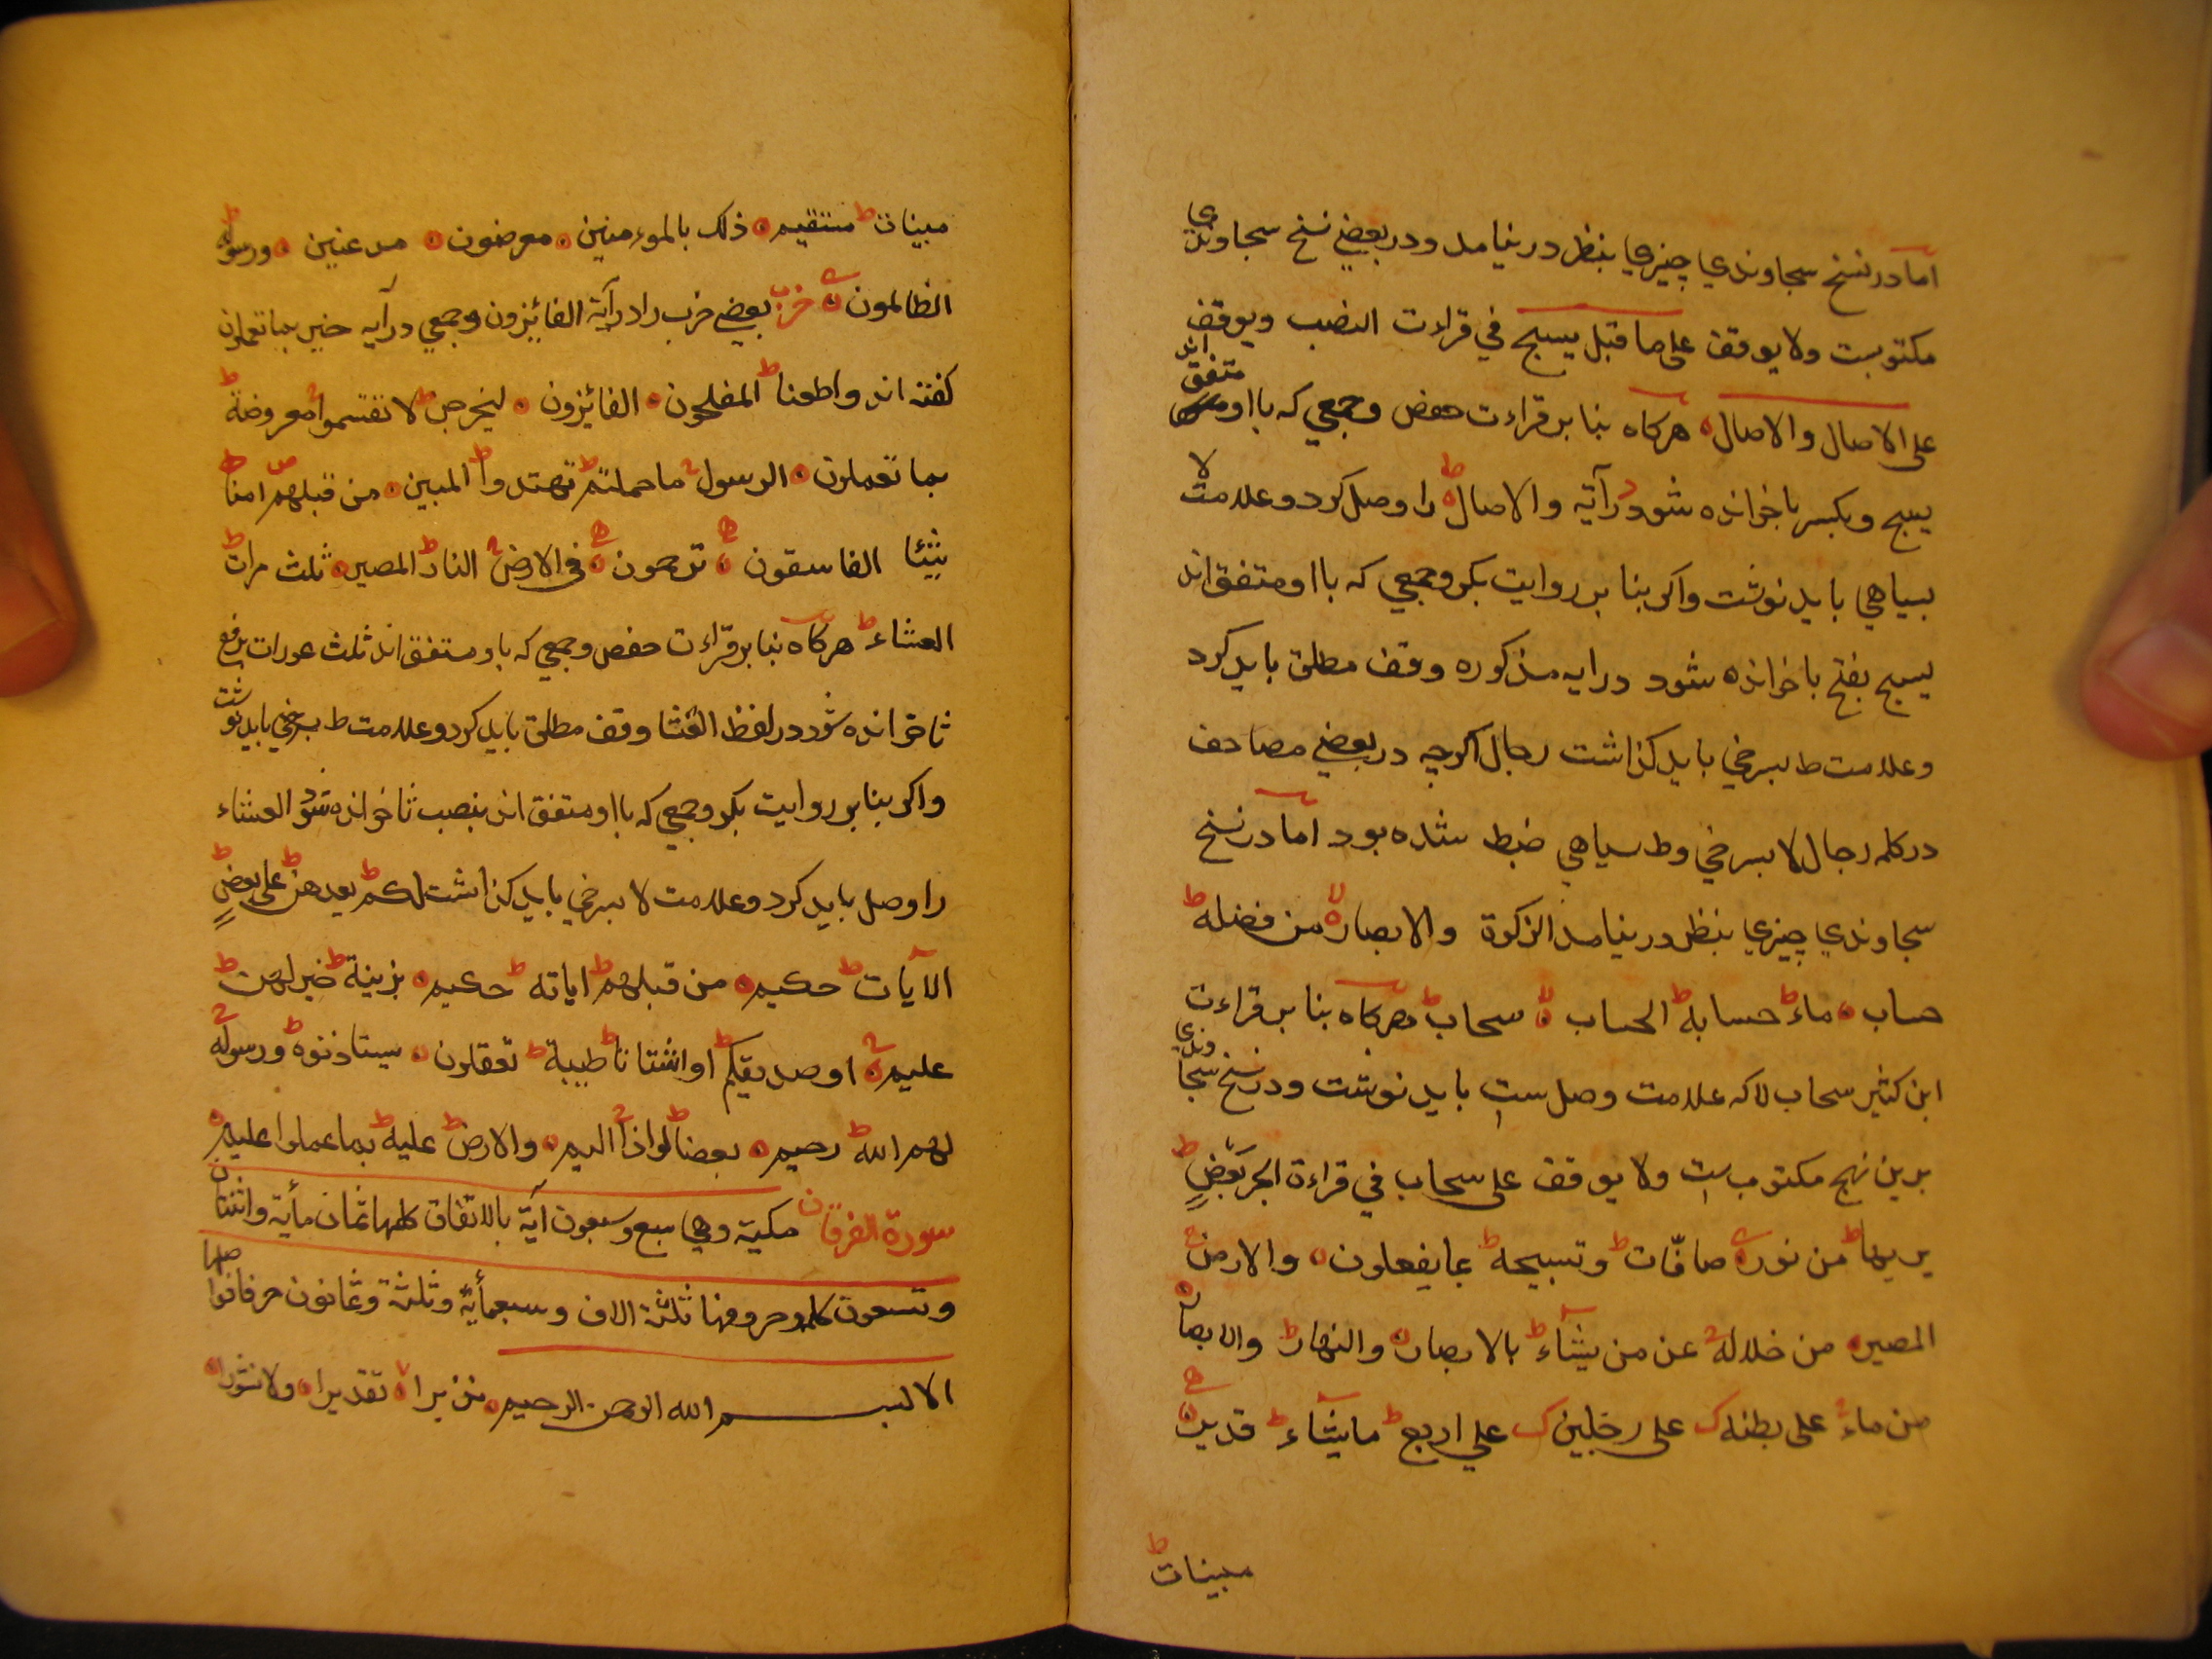 اما در نسخ سجاوندي چيزي بنظر در نيامد ودر بعضي نسخ سجاوندي
مكتوبست ولا يوقف على ما قبل يسبح في قراءت النصب ويوقف
على الاصال والاصال هركاه بنا بر قراءت حفص وجمعي كه باا و متفق اند
يسبح وبكسر با خوانده شود در آيه والاصال را وصل كرد وعلامت لا
بسياهي بايد نوشت واكر بنا بر روايت بكر وجمعي كه باا و متفق اند
يسبح بفتح با خوانده شود در ايه مذكوره وقف مطلق بايد كرد
وعلامت ط بسرخي بايد كذاشت رجال اكرچه در بعضي مصاحف
در كلمه رجال لا بسرخي وط سياهي ضبط شده بود اما در نسخ
سجاوندي چيزي بنظر در نيامد الزكوة والابصار لا من فضله ط
حساب ماء ط حسابه ط الحساب لا سحاب ط هركاه بنا بر قراءت
ابن كثير سحاب لا كه علامت وصل ست بايد نوشت ودر نسخ سجاوندي
برين نهج مكتوب ست ولا يوقف على سحاب في قراءة الجر بعضٍ ط
يريها ط من نور صافّات ط وتسبيحه ط بما يفعلون والارض ج
المصير من خلاله ج عن من يشآء ط بالابصار والنهار ط والابصار
من ماء ج على بطنه ك على رجلين ك على اربع ط ما يشآء ط قدير
مبينات ط
مبينات ط مستقيم ذلك بالموءمنين معرضون مذعنين ورسوله ط
الظالمون حزب بعضي حزب را در آية الفائزون وجمعي در آيه خبير بما تعملون
كفته اند واطعنا ط المفلحون الفائزون ليخرجن ط لا تقسموا ج معروفة ط
بما تعملون الرسول ج ما حملتم ط تهتدوا ط المبين من قبلهم ص امنا ط
شيئا الفاسقون ترحمون في الارض ج النار ط المصير ثلث مرات ط
العشاء ط هركاه بنا بر قراءت حفص وجمعي كه باو متفق اند ثلث عورات برفع
ثا خوانده شود در لفظ العشا وقف مطلق بايد كرد وعلامت ط بسرخي بايد نوشت
واكر بنا بر روايت بكر وجمعي كه باا و متفق اند بنصب ثا خوانده شود العشاء
را وصل بايد كرد وعلامت لا بسرخي بايد كذاشت لكم ط بعدهن ط على بعضٍ ط
الآيات ط حكيم من قبلهم ط اياته ط حكيم بزينة ط خير لهن ط
عليم او صديقكم ط او اشتاتا ط طيبة ط تعقلون يستاذنوه ط ورسوله ج
لهم الله ط رحيم بعضا ط لواذا ج اليم والارض ط عليه ط بما عملوا عليم
سورة الفرقان مكية وهي سبع وسبعون آية بالاتفاق كلمها ثمان مأية واثنتان
وتسعون كلمه وحروفها ثلثة الاف وسبعمأية وثلثة وثمانون حرفا فواصلها
الا بسم الله الرحمن الرحيم نذيرا لا تقديرا ولا نشورا